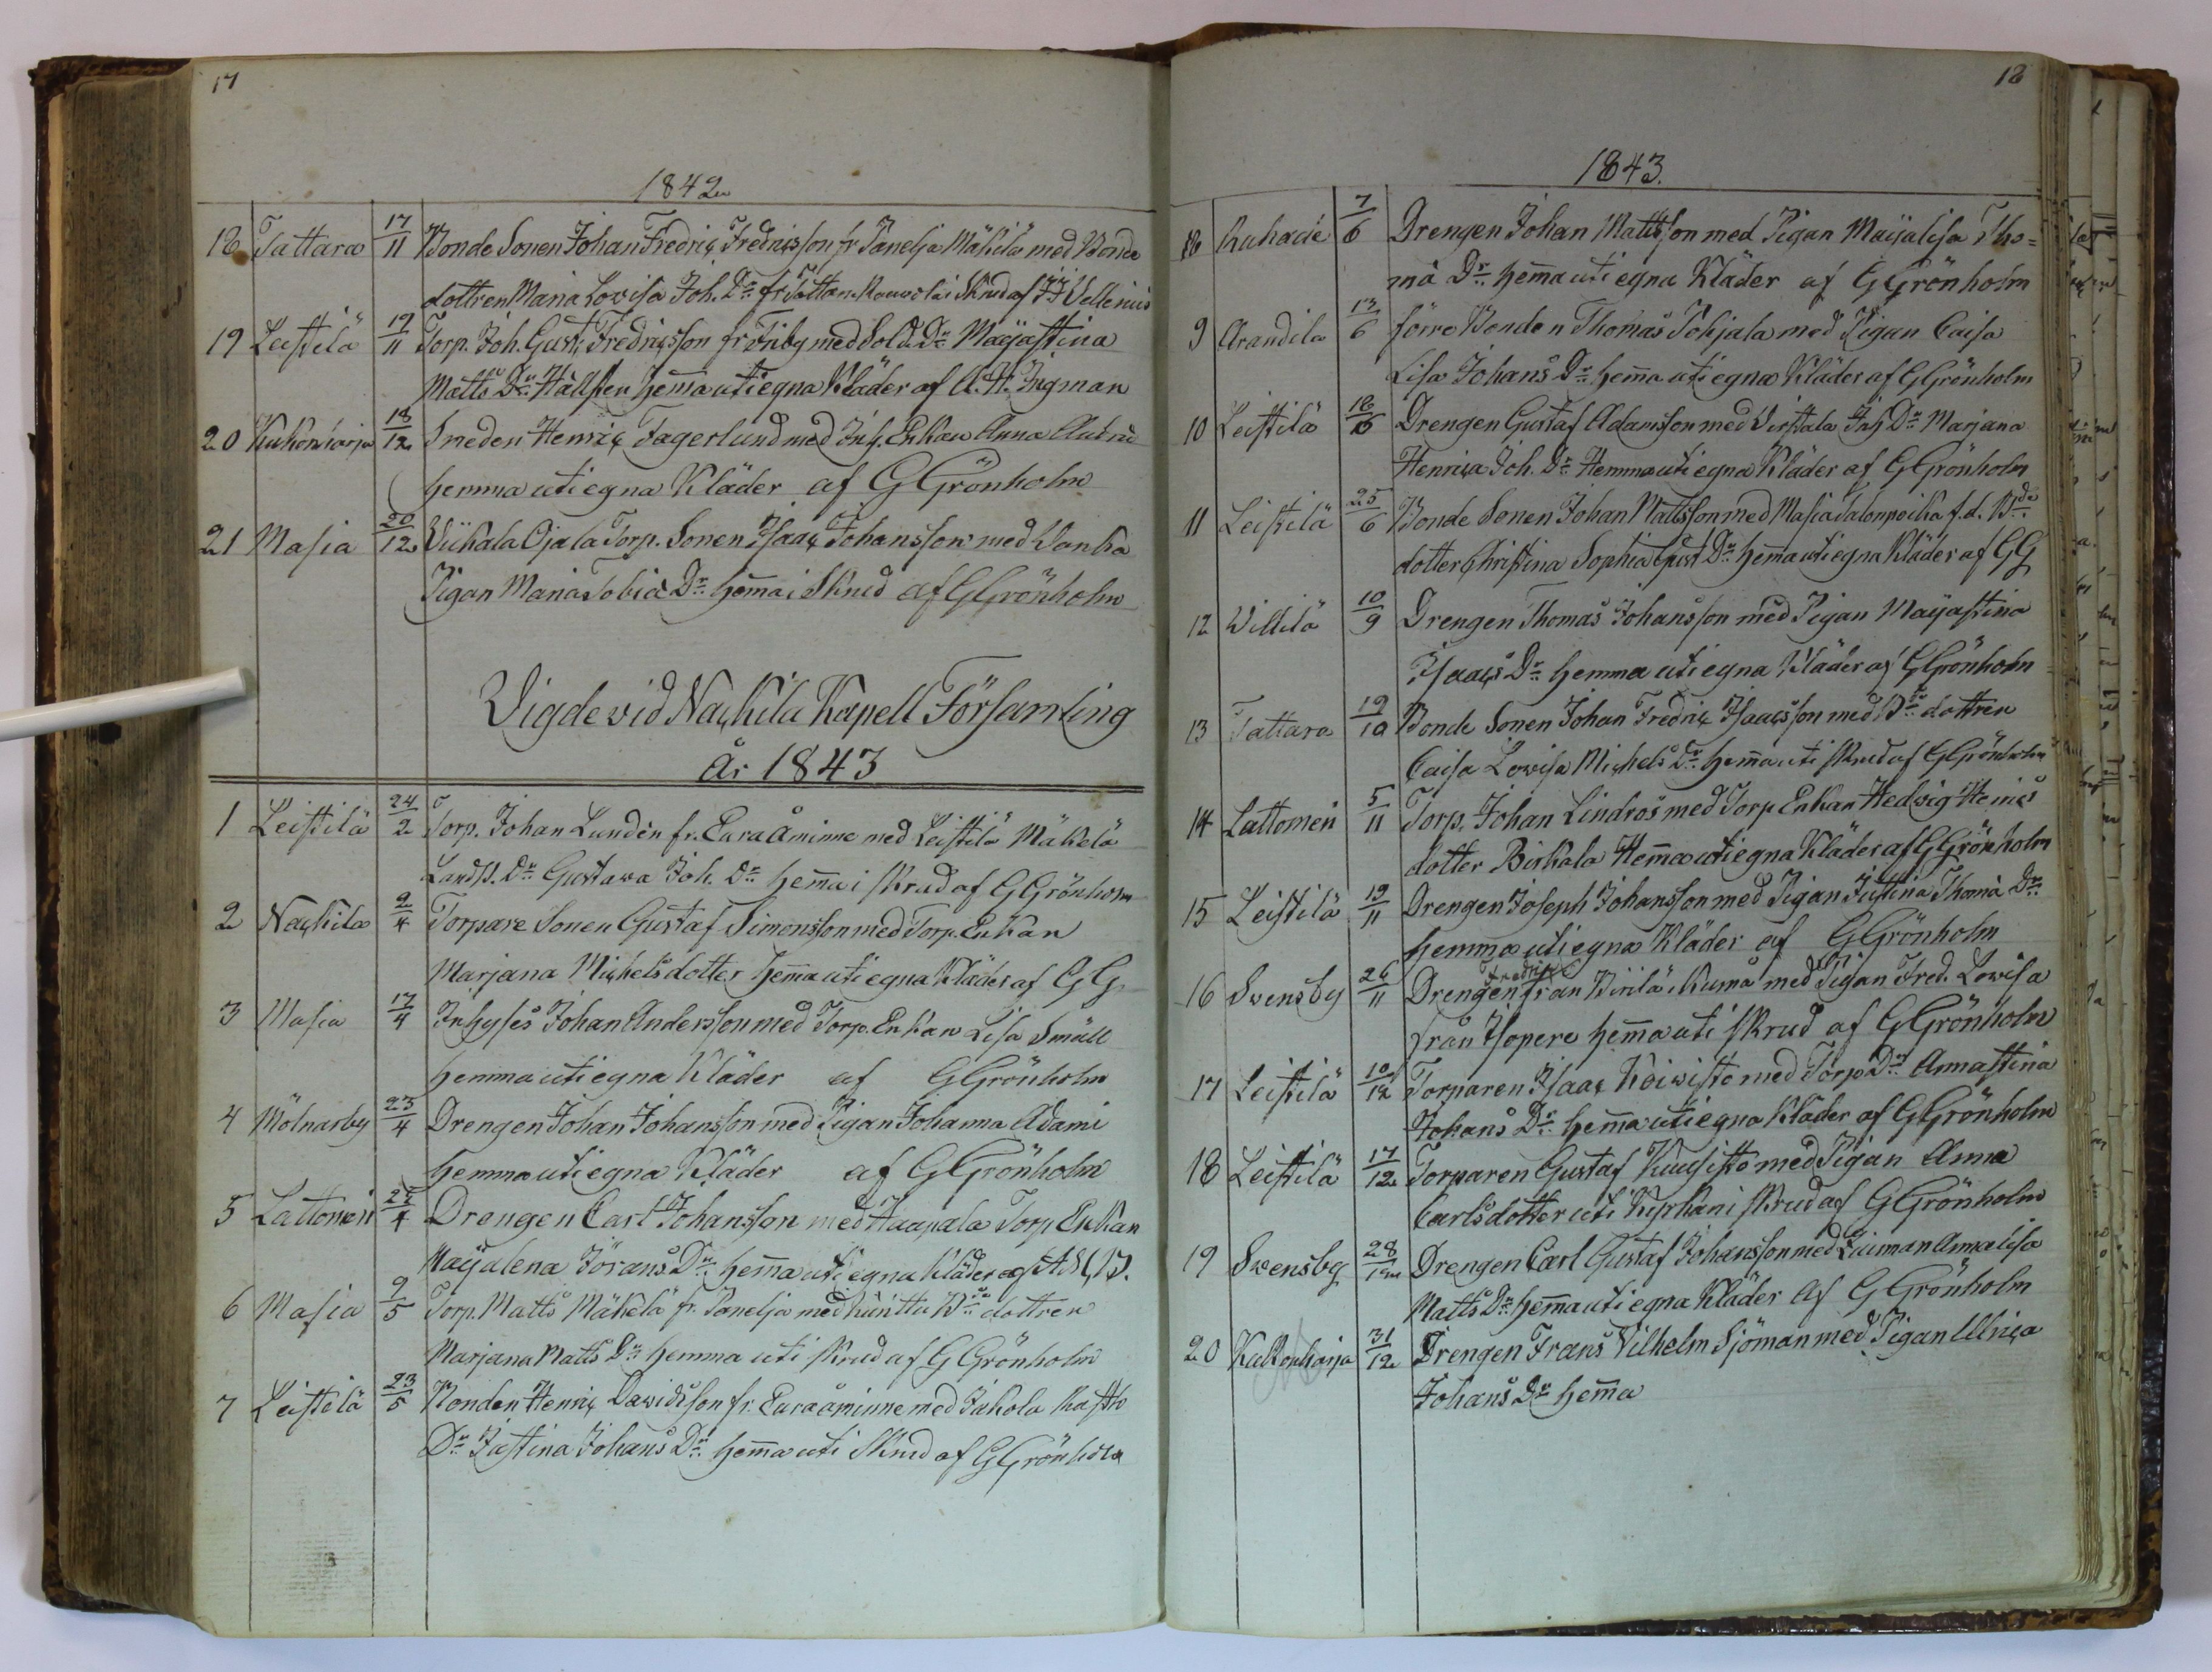 17
1842
18 Tattara 17/11 Bonde Sonen Johan Fredric Fredricsson fr Panelja Mäkilä med Bonde
dottren Maria Lovisa Joh. Dr fr Tattara Skrud af Vellenius
19 Leistilä 19/11 Torp. Joh. Gust. Fredricsson fr Friby med Sold. Dr Majastina
Matts Dr Hällsten hema uti egna Kläder af A. H. Ingman
20 Kukonharja 18/12 Smeden Henric Fagerlund med Inh. Enkan Anna
hemma uti egna Kläder af G Grönholm
21 Masia 20/12 Viikala Ojala Torp. Sonen Isaac Johansson med
Pigan Maria Tobiæ Dr hema i Skrud af G Grönholm
Vigde vid Nackila Kapell Församling
År 1843
1 Leistilä 24/2 Torp. Johan Lundén fr. Euraåminne med Leistilä Mäkelä
Landb. Dr Gustava Joh. Dr hema i skrud af G Grönholm
2 Nackila 2/4 Torpare Sonen Gustaf Simonsson med Torp. Enkan
Marjana Michelsdotter hema uti egna Kläder af G G.
3 Masia 17/4 Inhyses Johan Andersson med Torp. Enkan Lisa Småll
hemma uti egna Kläder af G Grönholm
4 Molnarby 23/4 Drengen Johan Johansson med Pigan Johanna Adami
hemma uti egna Kläder af G Grönholm
5 Lattomeri 4 Drengen Carl Johansson med Haapala Torp Enkan
Majalena Jörans Dr hema uti egna Kläder af
6 Masia 9/5 Torp. Matts Mäkelä fr. Panelja med Kunttu Bde dottren
Marjana Matts Dr hemma uti skrud af G Grönholm
7 Leistilä 23/5 Bonden Henric Davidsson fr. Euraåminne med Jakola
Dr Justina Johans Dr hema uti Skrud af G Grönholm
18
1843.
8 Ruhade 7/6 Drengen Johan Mattsson med Pigan Majalisa Tho=
mæ Dr hema uti egna Kläder af G Grönholm
9 Arandila 13/6 förre Bonden Thomas Pohjala med Pigan Caisa
Lisa Johans Dr hema uti egna Kläder af G Grönholm
10 Leistilä 18/6 Drengen Gustaf Adamsson med Inh Dr Marjana
Henrica Joh. Dr Hemma uti egna Kläder af G Grönholm
11 Leistilä 25/6 Bonde Sonen Johan Mattsson med Masia Talonpoika f.d. Bde
dotter Christina Sophia Gust Dr hema uti egna Kläder af G G
12 Villilä 10/9 Drengen Thomas Johansson med Pigan Majastina
Isaacs Dr hemma uti egna Kläder af G Grönholm
13 Tattara 19/10 Bonde Sonen Johan Fredric Isaacsson med Bde dottren
Caisa Lovisa Michels Dr hema uti skrud af G Grönholm
14 Lattomeri 5/11 Torp. Johan Lindros med Torp Enkan Hedvig Henrics
dotter Pirkala Hema uti egna Kläder af G Grönholm
15 Leistilä 19/11 Drengen Joseph Johansson med Pigan Justina Thomæ Dr
hemma uti egna Kläder af G Grönholm
Fredric
16 Svensby 26/11 Drengen från i Kumo med Pigan Fred. Lovisa
från hema uti skrud af G Grönholm
17 Leistilä 10/12 Torparen Isaac Koivisto med Torp Dr Annastina
Johans Dr hema uti egna Kläder af G Grönholm
18 Leistilä 17/12 Torparen Gustaf Kuusisto med Pigan Anna
Carlsdotter uti Kyrkan i skrud af G Grönholm
19 Svensby 28/12 Drengen Carl Gustaf Johansson med Annalisa
Matts Dr hema uti egna Kläder af G Grönholm
20 Kukonharja 31/12 Drengen Frans Vilhelm Sjöman med Pigan Ulrica
Johans Dr hema